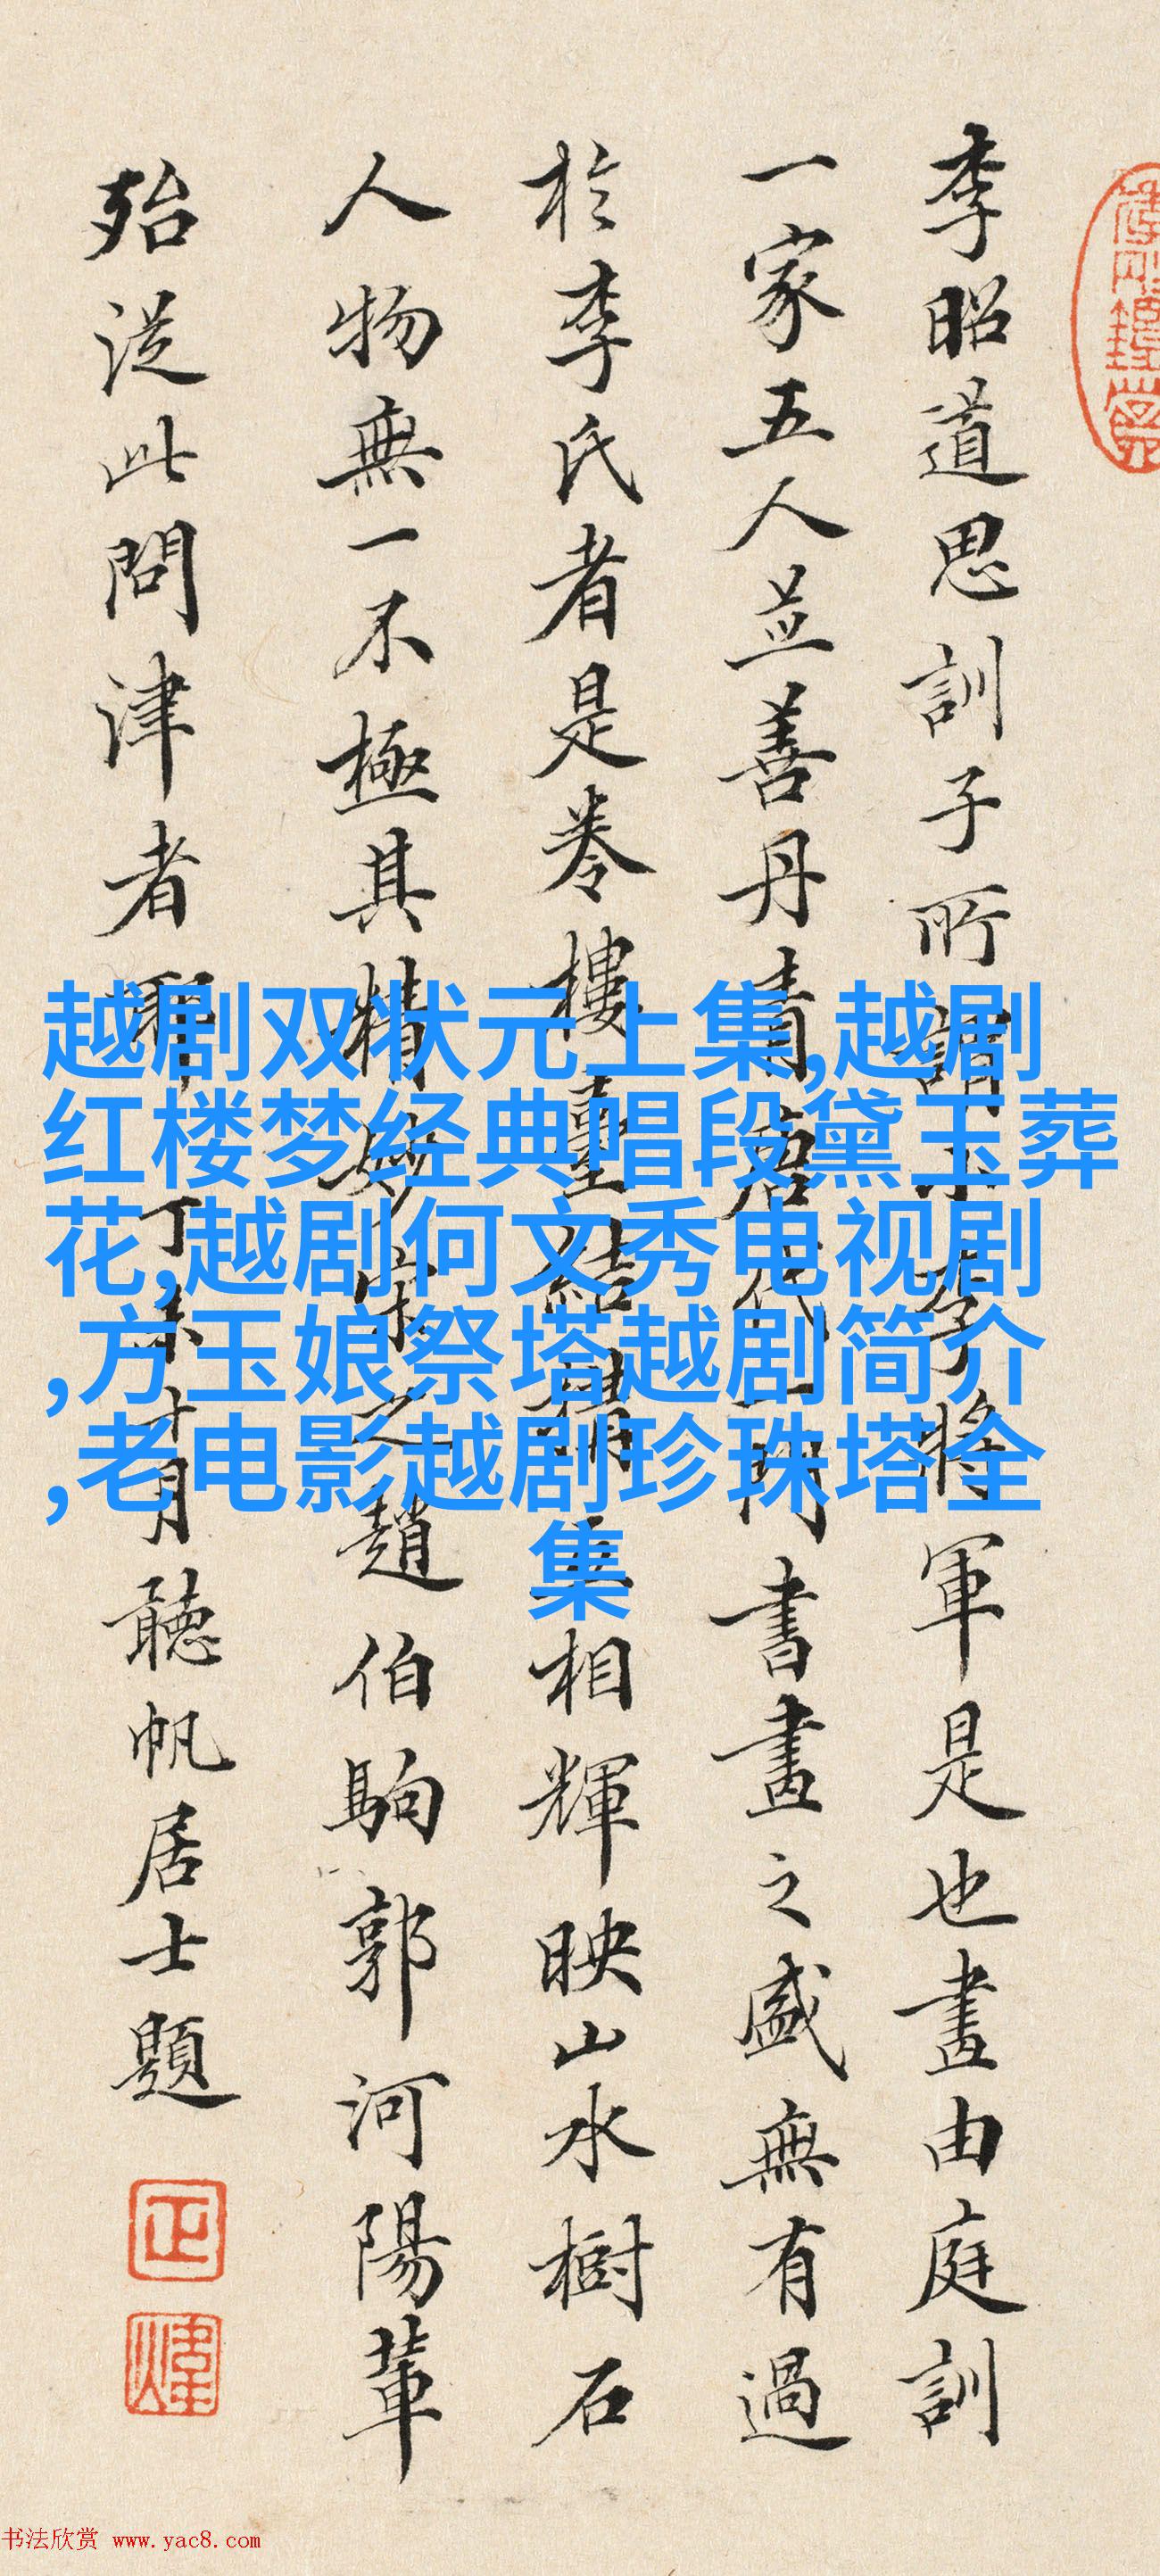 李昭道思訓子所謂小李將軍是也畫由庭訓
一家五人並善丹青唐代一門書畫之盛無有過
於李氏者是卷樓臺結構相輝映山水樹石
人物無一不極其精妙宋之趙伯駒郭河陽輩
殆從此問津者耶丁未十月聽帆居士題
越剧双状元上集,越剧
红楼梦经典唱段黛玉葬
花,越剧何文秀电视剧
,方玉娘祭塔越剧简介
,老电影越剧珍珠塔全
集
书法欣赏 www.yac8.com